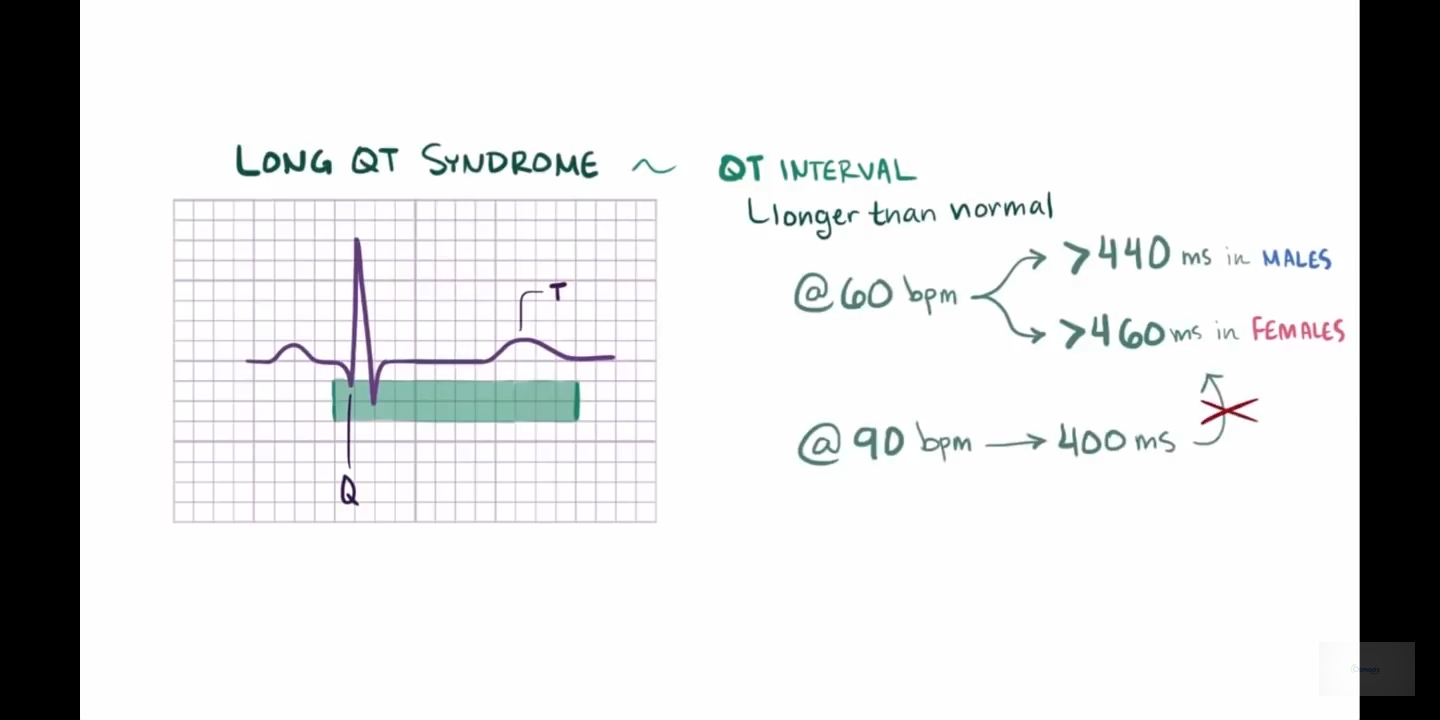 LONG QT SYNDROME ~ QT INTERVAL
longer than normal
@ 60 bpm
>440 ms in MALES
>460 ms in FEMALES
@ 90 bpm → 400 ms
T
Q